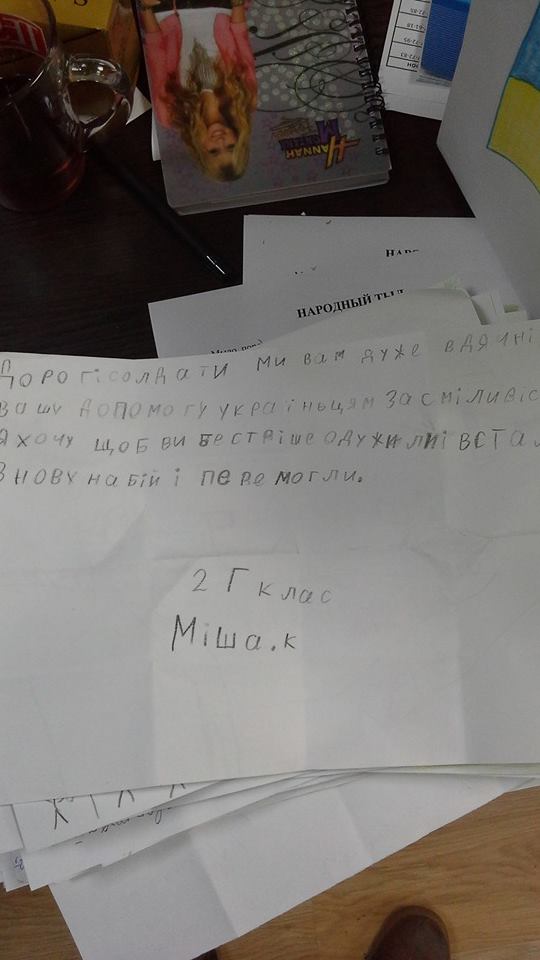 HANNAH
MONTANA
НАРОДНЫЙ ТЫЛ
Дорогі солдати ми вам дуже вдячні
вашу допомогу україньцям за сміливіс
Я хочу щоб ви бестріше одужилиі вста
знову на бій і перемогли.
2 Г клас
Міша.к